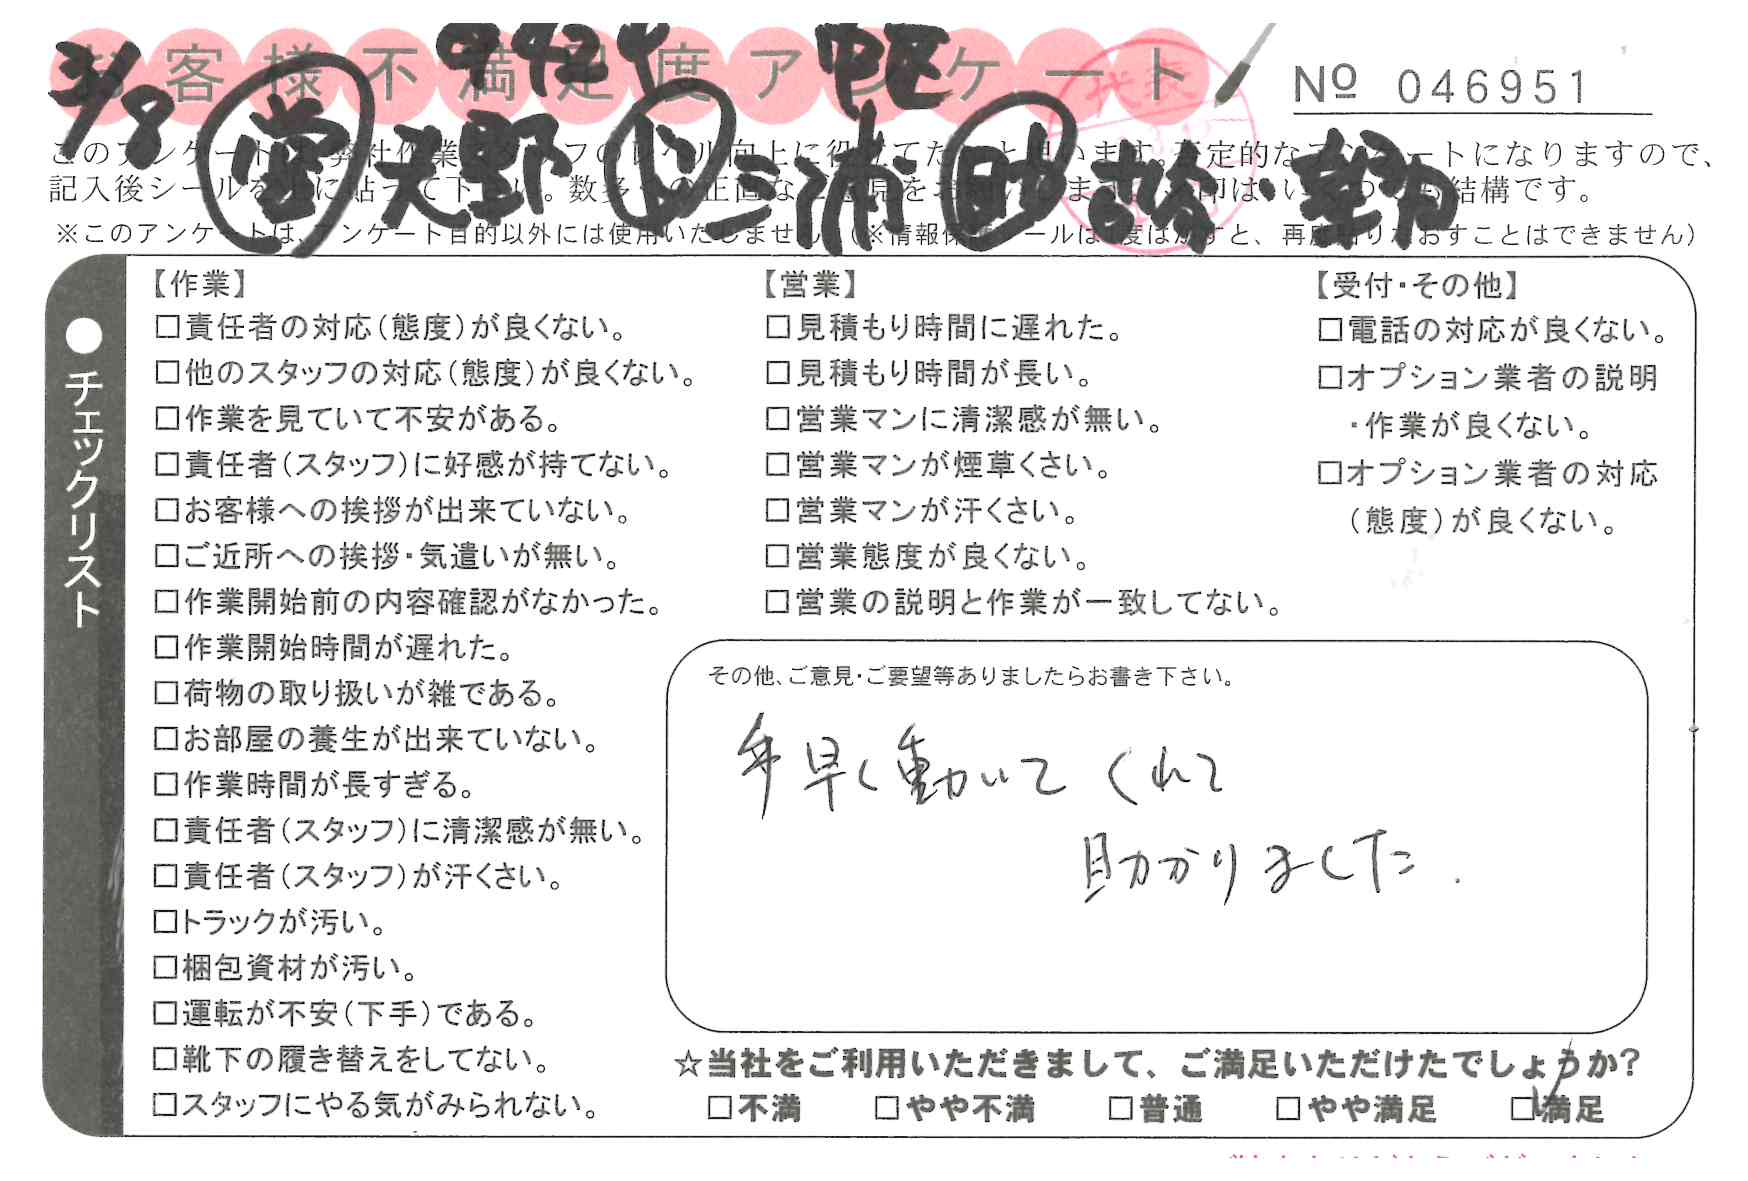 お客様不満足度アンケート
No 046951
3/8
中区
天野
三浦
このアンケートは、弊社作業スタッフのレベル向上に役立てたいと思います。否定的なアンケートになりますので、
記入後シールを上に貼って下さい。数多くの正直なご意見をお願いします。
※このアンケートは、アンケート目的以外には使用いたしません。(※情報保護シールは1度はがすと、再度貼りなおすことはできません)
●チェックリスト
【作業】
□責任者の対応(態度)が良くない。
□他のスタッフの対応(態度)が良くない。
□作業を見ていて不安がある。
□責任者(スタッフ)に好感が持てない。
□お客様への挨拶が出来ていない。
□ご近所への挨拶・気遣いが無い。
□作業開始前の内容確認がなかった。
□作業開始時間が遅れた。
□荷物の取り扱いが雑である。
□お部屋の養生が出来ていない。
□作業時間が長すぎる。
□責任者(スタッフ)に清潔感が無い。
□責任者(スタッフ)が汗くさい。
□トラックが汚い。
□梱包資材が汚い。
□運転が不安(下手)である。
□靴下の履き替えをしてない。
□スタッフにやる気がみられない。
【営業】
□見積もり時間に遅れた。
□見積もり時間が長い。
□営業マンに清潔感が無い。
□営業マンが煙草くさい。
□営業マンが汗くさい。
□営業態度が良くない。
□営業の説明と作業が一致してない。
【受付・その他】
□電話の対応が良くない。
□オプション業者の説明
・作業が良くない。
□オプション業者の対応
(態度)が良くない。
その他、ご意見・ご要望等ありましたらお書き下さい。
手早く動いてくれて
助かりました.
☆当社をご利用いただきまして、ご満足いただけたでしょうか?
□不満 □やや不満 □普通 □やや満足 □満足